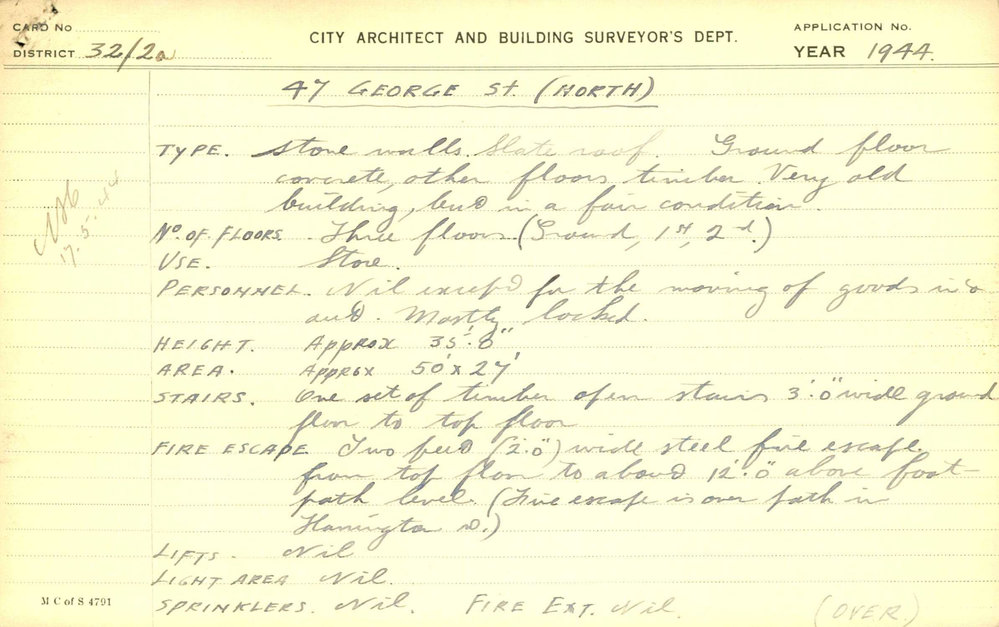 CARD No
DISTRICT 32/2a
CITY ARCHITECT AND BUILDING SURVEYOR'S DEPT.
APPLICATION No.
YEAR 1944.
47 GEORGE St. (NORTH)
TYPE. Stone walls. Slate roof. Ground floor
concrete, other floors timber. Very old
building, but in a fair condition.
No. OF FLOORS. Three floors. (Ground, 1st, 2nd.)
USE. Store.
PERSONNEL. Nil except for the moving of goods in &
out. Mostly locked.
HEIGHT. Approx 35'.0"
AREA. Approx 50' x 27'
STAIRS. One set of timber open stairs 3'.0" wide ground
floor to top floor
FIRE ESCAPE Two feet (2'.0") wide steel fire escape
from top floor to about 12'.0" above foot-
path level. (Fire escape is over path in
Harrington St.)
LIFTS. Nil
LIGHT AREA Nil.
SPRINKLERS. Nil. FIRE EXT. Nil.
(OVER)
17.5.44
M C of S 4791